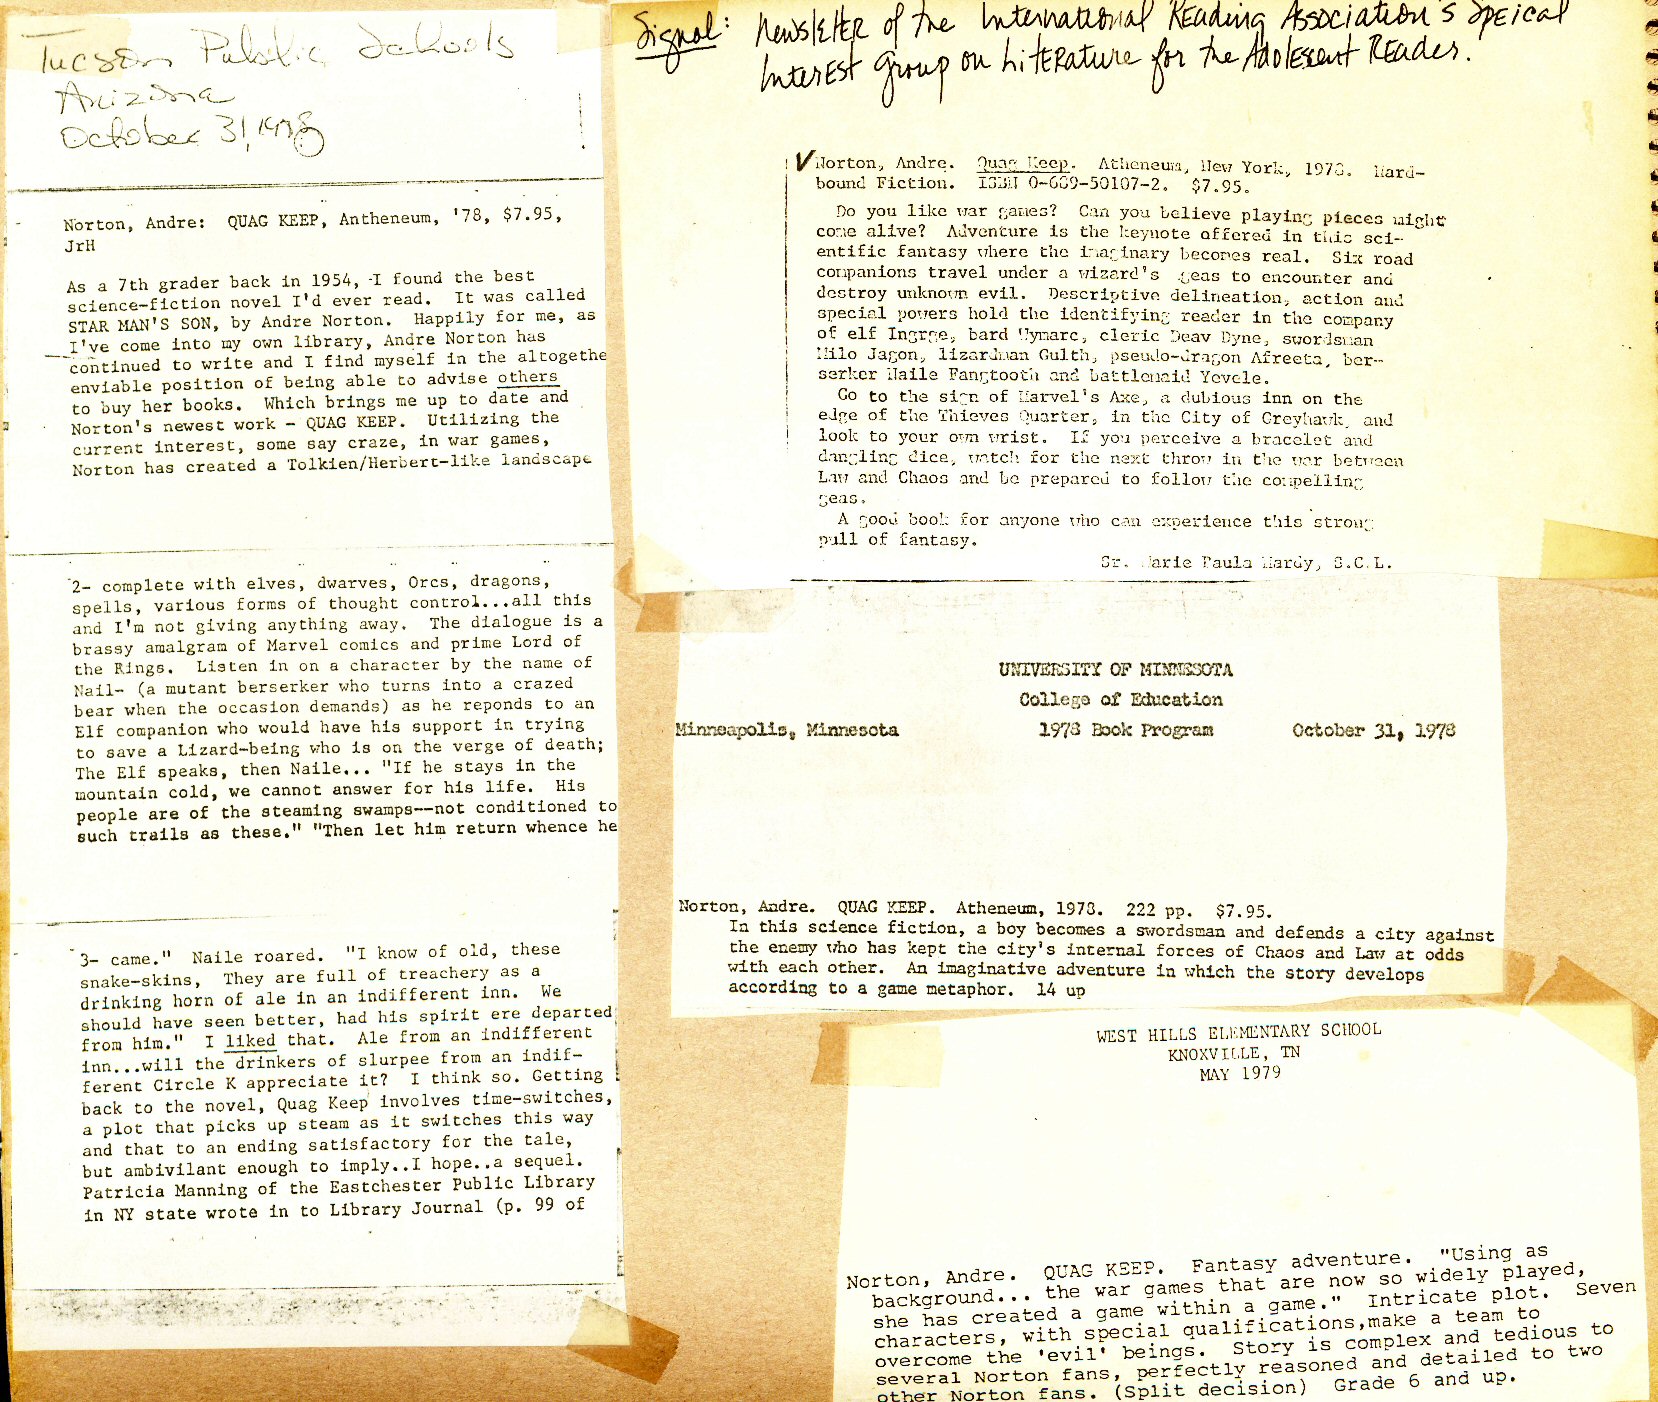 Tucson Public Schools
Arizona
October 31, 1978
Norton, Andre:  QUAG KEEP, Antheneum, '78, $7.95,
JrH
As a 7th grader back in 1954, I found the best
science-fiction novel I'd ever read.  It was called
STAR MAN'S SON, by Andre Norton.  Happily for me, as
I've come into my own library, Andre Norton has
continued to write and I find myself in the altogethe
enviable position of being able to advise others
to buy her books.  Which brings me up to date and
Norton's newest work - QUAG KEEP.  Utilizing the
current interest, some say craze, in war games,
Norton has created a Tolkien/Herbert-like landscape
2- complete with elves, dwarves, Orcs, dragons,
spells, various forms of thought control...all this
and I'm not giving anything away.  The dialogue is a
brassy amalgram of Marvel comics and prime Lord of
the Rings.  Listen in on a character by the name of
Nail- (a mutant berserker who turns into a crazed
bear when the occasion demands) as he reponds to an
Elf companion who would have his support in trying
to save a Lizard-being who is on the verge of death;
The Elf speaks, then Naile... "If he stays in the
mountain cold, we cannot answer for his life.  His
people are of the steaming swamps--not conditioned to
such trails as these." "Then let him return whence he
3- came."  Naile roared.  "I know of old, these
snake-skins, They are full of treachery as a
drinking horn of ale in an indifferent inn.  We
should have seen better, had his spirit ere departed
from him."  I liked that.  Ale from an indifferent
inn...will the drinkers of slurpee from an indif-
ferent Circle K appreciate it?  I think so. Getting
back to the novel, Quag Keep involves time-switches,
a plot that picks up steam as it switches this way
and that to an ending satisfactory for the tale,
but ambivilant enough to imply..I hope..a sequel.
Patricia Manning of the Eastchester Public Library
in NY state wrote in to Library Journal (p. 99 of
Signal: Newsletter of the International Reading Association's Speical
Interest Group on Literature for the Adolescent Reader.
Norton, Andre.  Quag Keep.  Atheneum, New York, 1978.  Hard-
bound Fiction.  ISBN 0-689-50107-2.  $7.95.
Do you like war games?  Can you believe playing pieces might
come alive?  Adventure is the keynote offered in this sci-
entific fantasy where the imaginary becomes real.  Six road
companions travel under a wizard's geas to encounter and
destroy unknown evil.  Descriptive delineation, action and
special powers hold the identifying reader in the company
of elf Ingrge, bard Wymarc, cleric Deav Dyne, swordsman
Milo Jagon, lizardman Gulth, pseudo-dragon Afreeta, ber-
serker Naile Fangtooth and battlemaid Yevele.
Go to the sign of Harvel's Axe, a dubious inn on the
edge of the Thieves Quarter, in the City of Greyhawk, and
look to your own wrist.  If you perceive a bracelet and
dangling dice, watch for the next throw in the war between
Law and Chaos and be prepared to follow the compelling
geas.
A good book for anyone who can experience this strong
pull of fantasy.
Sr. Marie Paula Hardy, S.C.L.
UNIVERSITY OF MINNESOTA
College of Education
Minneapolis, Minnesota  1978 Book Program  October 31, 1978
Norton, Andre.  QUAG KEEP.  Atheneum, 1978.  222 pp.  $7.95.
In this science fiction, a boy becomes a swordsman and defends a city against
the enemy who has kept the city's internal forces of Chaos and Law at odds
with each other.  An imaginative adventure in which the story develops
according to a game metaphor.  14 up
WEST HILLS ELEMENTARY SCHOOL
KNOXVILLE, TN
MAY 1979
Norton, Andre.  QUAG KEEP.  Fantasy adventure.  "Using as
background... the war games that are now so widely played,
she has created a game within a game."  Intricate plot.  Seven
characters, with special qualifications,make a team to
overcome the 'evil' beings.  Story is complex and tedious to
several Norton fans, perfectly reasoned and detailed to two
other Norton fans. (Split decision)  Grade 6 and up.